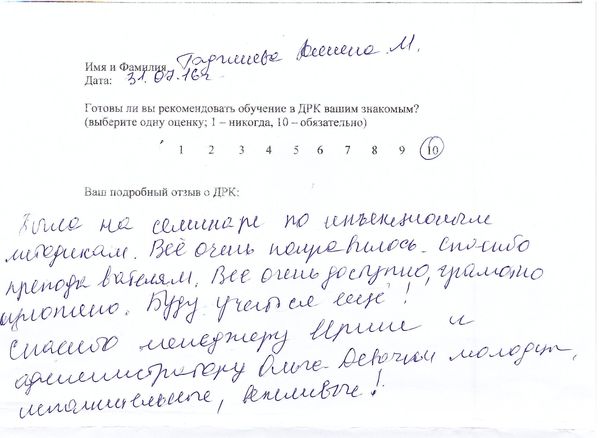 Имя и Фамилия Гаджиева М.
Дата: 31.07.16г
Готовы ли вы рекомендовать обучение в ДРК вашим знакомым?
(выберите одну оценку; 1 – никогда, 10 – обязательно)
1 2 3 4 5 6 7 8 9 10
Ваш подробный отзыв о ДРК:
Была на семинаре по инъекционным
методикам. Всё очень понравилось. Спасибо
преподавателям. Все очень доступно, грамотно
изложено. Буду учиться ещё!
Спасибо менеджеру Ирине и
администратору Ольге. Девочки молодцы,
исполнительные, вежливые!